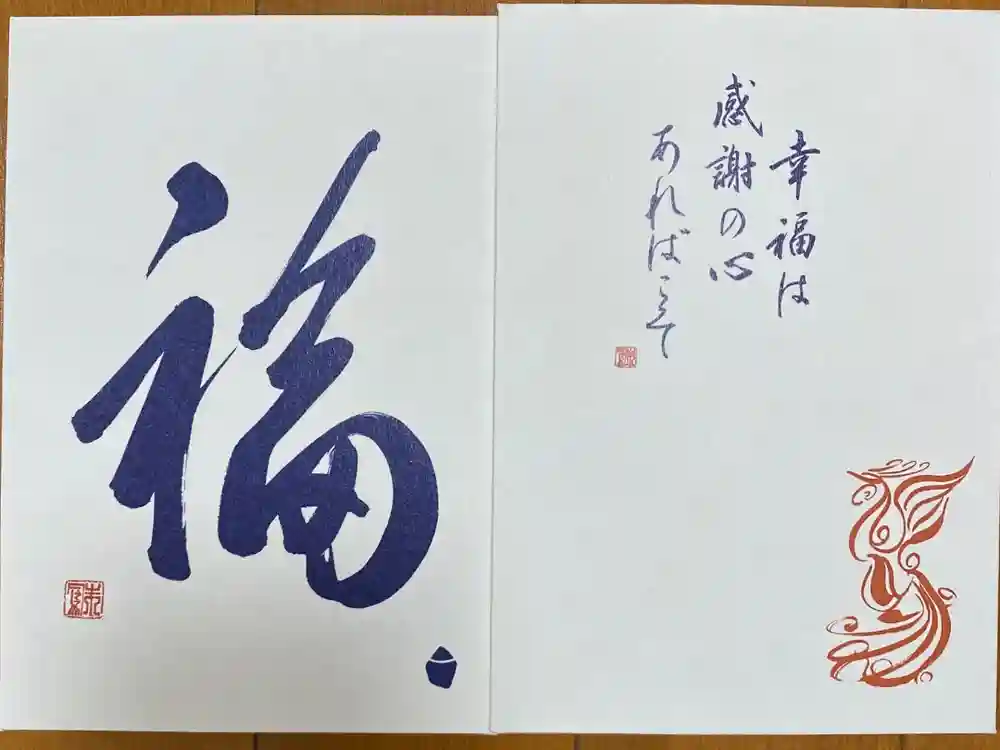 福
幸福は
感謝の心
あればこそ